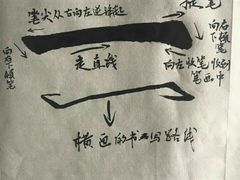 笔尖从右向左逆锋起
提笔
向右下顿笔
走直线
向右下顿笔
向左收笔收到
笔画中
横画的书写路线